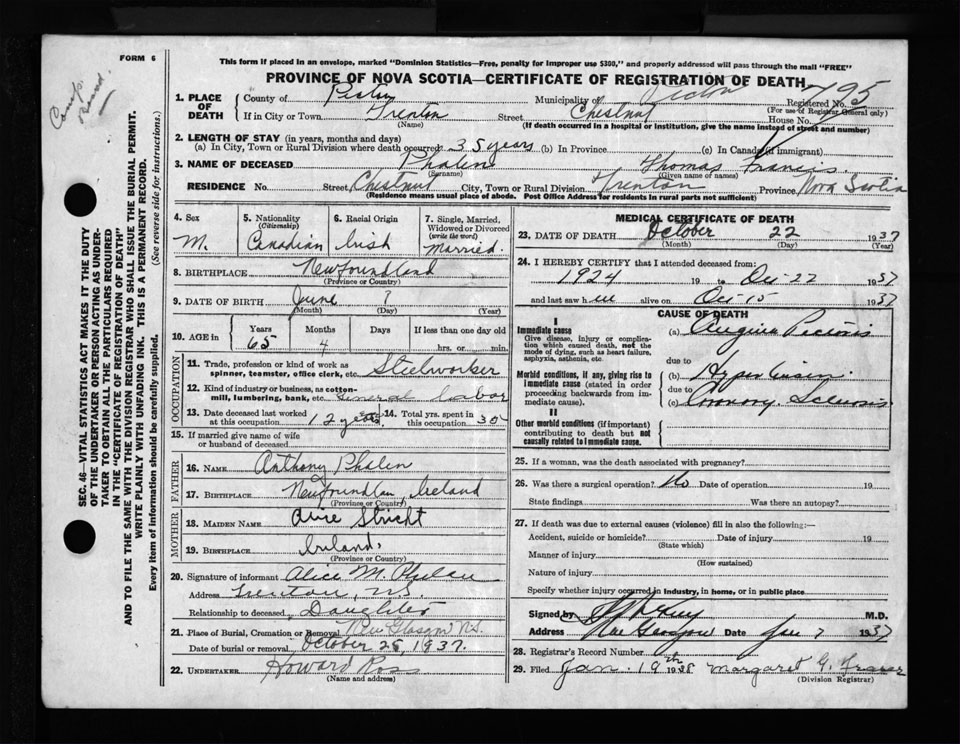 FORM 6
This form if placed in an envelope, marked "Dominion Statistics—Free, penalty for improper use $300," and properly addressed will pass through the mail "FREE"
PROVINCE OF NOVA SCOTIA—CERTIFICATE OF REGISTRATION OF DEATH
Registered No. 795
(For use of Registrar General only)
1. PLACE OF DEATH
County of Pictou Municipality of Pictou
If in City or Town Trenton Street Chestnut House No.
(Name) (If death occurred in a hospital or institution, give the name instead of street and number)
2. LENGTH OF STAY (in years, months and days)
(a) In City, Town or Rural Division where death occurred 35 years (b) In Province (c) In Canada (if immigrant)
3. NAME OF DECEASED Phalen Thomas Francis
(Surname) (Given name or names)
RESIDENCE No. Street Chestnut City, Town or Rural Division Trenton Province Nova Scotia
(Residence means usual place of abode. Post Office Address for residents in rural parts not sufficient)
4. Sex M.
5. Nationality (Citizenship) Canadian
6. Racial Origin Irish
7. Single, Married, Widowed or Divorced (write the word) Married.
8. BIRTHPLACE Newfoundland
(Province or Country)
9. DATE OF BIRTH June ?
(Month) (Day) (Year)
10. AGE in Years 65 Months 4 Days If less than one day old hrs. or min.
OCCUPATION
11. Trade, profession or kind of work as spinner, teamster, office clerk, etc. Steelworker
12. Kind of industry or business, as cotton-mill, lumbering, bank, etc. General Labor
13. Date deceased last worked at this occupation 12 years
14. Total yrs. spent in this occupation 30
15. If married give name of wife or husband of deceased
FATHER
16. NAME Anthony Phalen
17. BIRTHPLACE Ireland
(Province or Country)
MOTHER
18. MAIDEN NAME
19. BIRTHPLACE Ireland.
(Province or Country)
20. Signature of informant Alice M. Phalen
Address Trenton, N.S.
Relationship to deceased Daughter
21. Place of Burial, Cremation or Removal New Glasgow N.S.
Date of burial or removal October 25, 1937.
22. UNDERTAKER Howard Ross
(Name and address)
MEDICAL CERTIFICATE OF DEATH
23. DATE OF DEATH October 22 1937
(Month) (Day) (Year)
24. I HEREBY CERTIFY that I attended deceased from:
1924 19 to Oct-22 1937
and last saw him alive on Oct-15 1937
CAUSE OF DEATH
I
Immediate cause
Give disease, injury or complication which caused death, not the mode of dying, such as heart failure, asphyxia, asthenia, etc.
(a) Angina Pectoris
due to
Morbid conditions, if any, giving rise to immediate cause (stated in order proceeding backwards from immediate cause).
(b)
due to
(c) Coronary Sclerosis
II
Other morbid conditions (if important) contributing to death but not causally related to immediate cause.
25. If a woman, was the death associated with pregnancy?
26. Was there a surgical operation? No Date of operation 19
State findings Was there an autopsy?
27. If death was due to external causes (violence) fill in also the following:—
Accident, suicide or homicide? Date of injury 19
(State which)
Manner of injury
(How sustained)
Nature of injury
Specify whether injury occurred in industry, in home, or in public place
Signed by M.D.
Address New Glasgow Date Jan 7 1937
28. Registrar's Record Number
29. Filed Jan. 19th 1938 Margaret G. Fraser
(Division Registrar)
SEC. 46—VITAL STATISTICS ACT MAKES IT THE DUTY
OF THE UNDERTAKER OR PERSON ACTING AS UNDER-
TAKER TO OBTAIN ALL THE PARTICULARS REQUIRED
IN THE "CERTIFICATE OF REGISTRATION OF DEATH"
AND TO FILE THE SAME WITH THE DIVISION REGISTRAR WHO SHALL ISSUE THE BURIAL PERMIT.
WRITE PLAINLY WITH UNFADING INK. THIS IS A PERMANENT RECORD.
Every item of information should be carefully supplied. (See reverse side for instructions.)